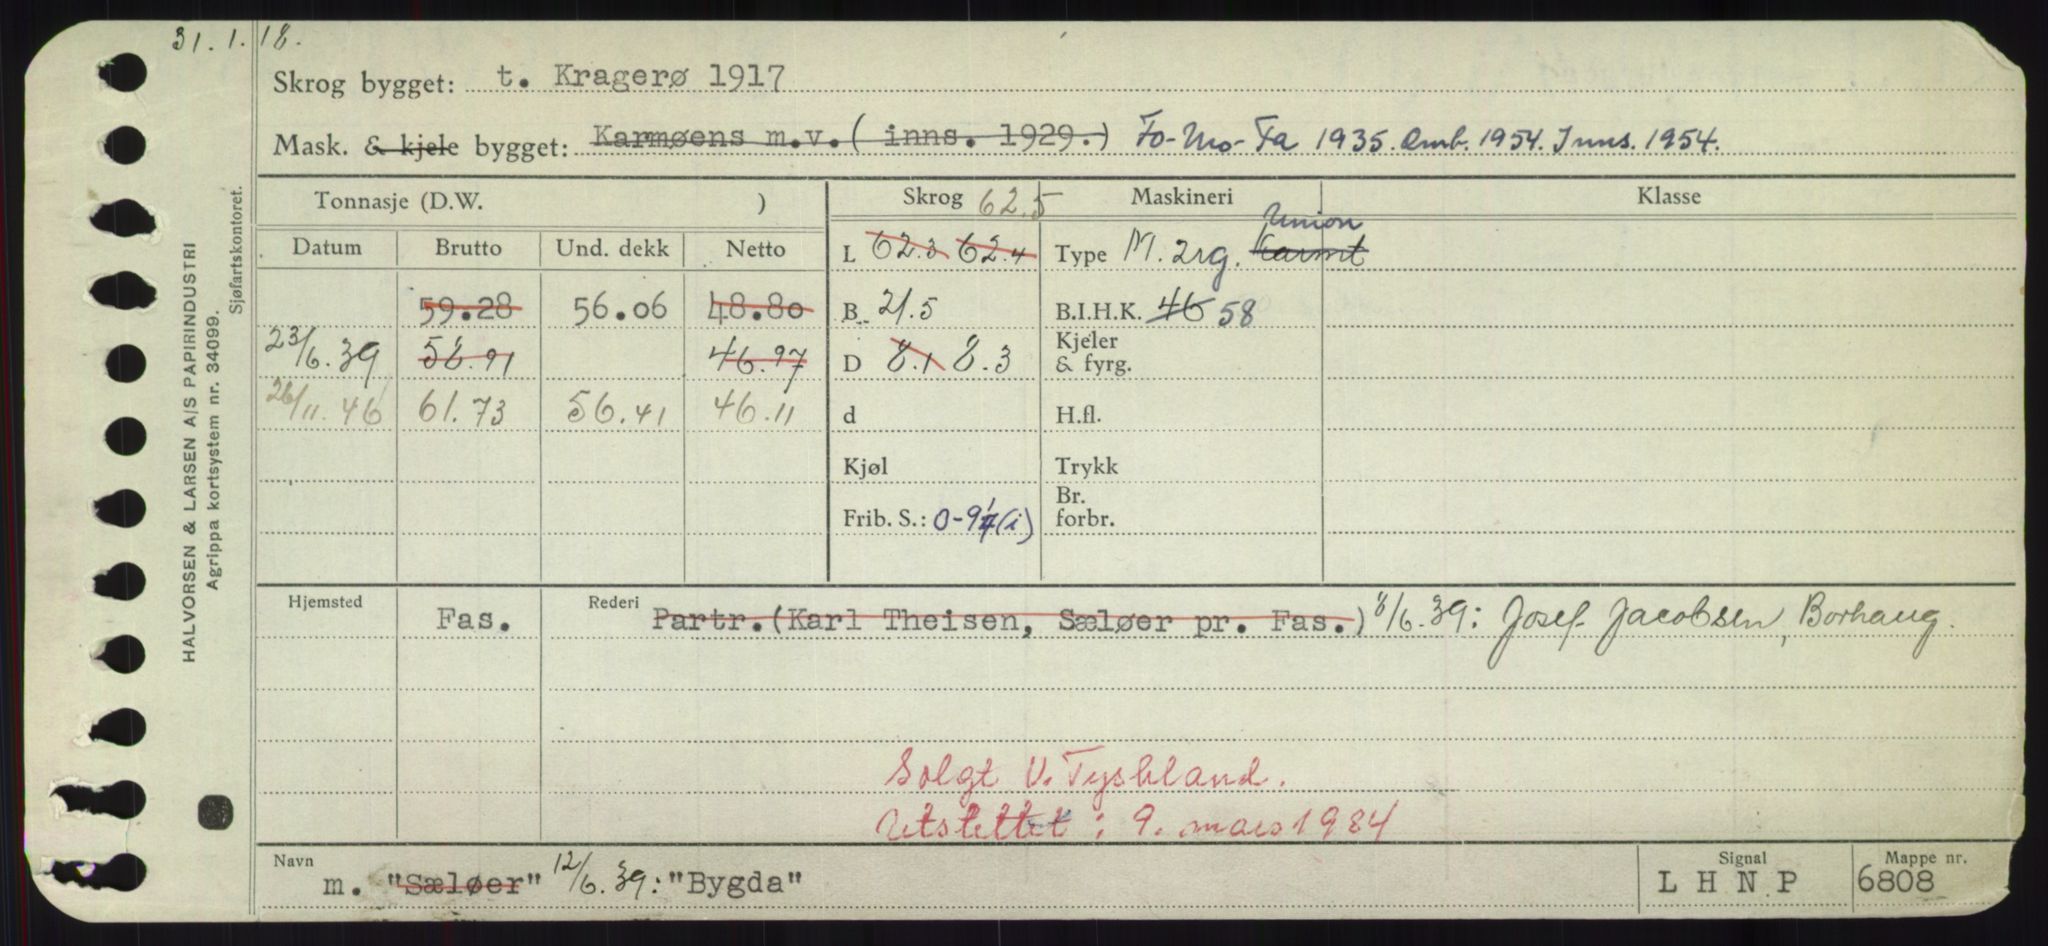 31.1.18.
Skrog bygget: t. Kragerø 1917
Mask. & kjele bygget: Karmøens m.v.( inns. 1929.) Fo-Mo-Fa 1935. Omb. 1954. Inns. 1954.
Tonnasje (D.W. ) Skrog 62.5 Maskineri Klasse
Union
Datum Brutto Und. dekk Netto L 62.3 62.4 Type M. 2rg. Karmt
59.28 56.06 48.80 B 21.5 B.I.H.K. 46 58
23/6.39 58.91 46.97 D 8.1 8.3 Kjeler & fyrg.
26/11.46 61.73 56.41 46.11 d H.fl.
Kjøl Trykk
Frib. S.: 0-9 (i) Br. forbr.
Hjemsted Fas. Rederi Partr.(Karl Theisen, Sæløer pr. Fas.) 8/6.39: Josef Jacobsen, Borhaug.
Solgt V. Tyskland.
Utslettet: 9. mars 1984
Navn m. "Sæløer" 12/6.39: "Bygda" Signal L H N P Mappe nr. 6808
HALVORSEN & LARSEN A/S PAPIRINDUSTRI
Agrippa kortsystem nr. 34099.
Sjøfartskontoret.